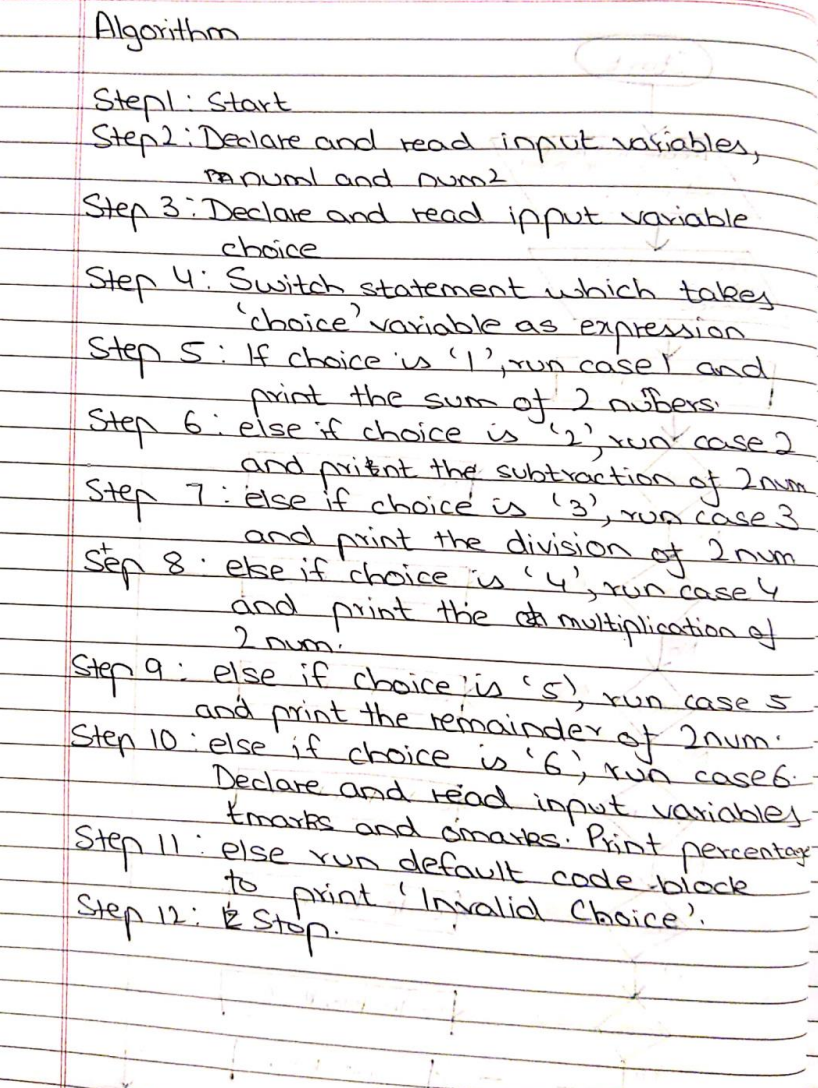 Algorithm
Step1: Start
Step2: Declare and read input variables,
num1 and num2
Step 3: Declare and read input variable
choice
Step 4: Switch statement which takes
'choice' variable as expression
Step 5: If choice is '1', run case 1 and
print the sum of 2 nubers.
Step 6: else if choice is '2', run case 2
and print the subtraction of 2 num
Step 7: else if choice is '3', run case 3
and print the division of 2 num
Step 8: else if choice is '4', run case 4
and print the multiplication of
2 num.
Step 9: else if choice is '5', run case 5
and print the remainder of 2num.
Step 10: else if choice is '6', run case6.
Declare and read input variables
tmarks and omarks. Print percentage
Step 11: else run default code block
to print 'Invalid Choice'.
Step 12: Stop.